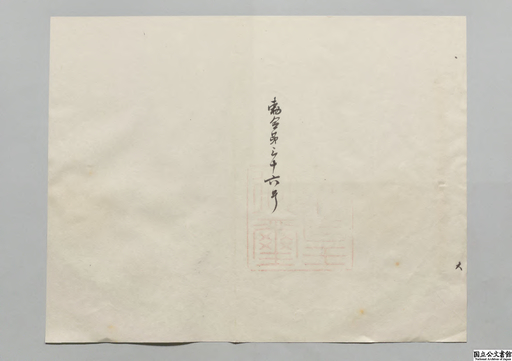 勅令第三十六号
大
国立公文書館
National Archives of Japan